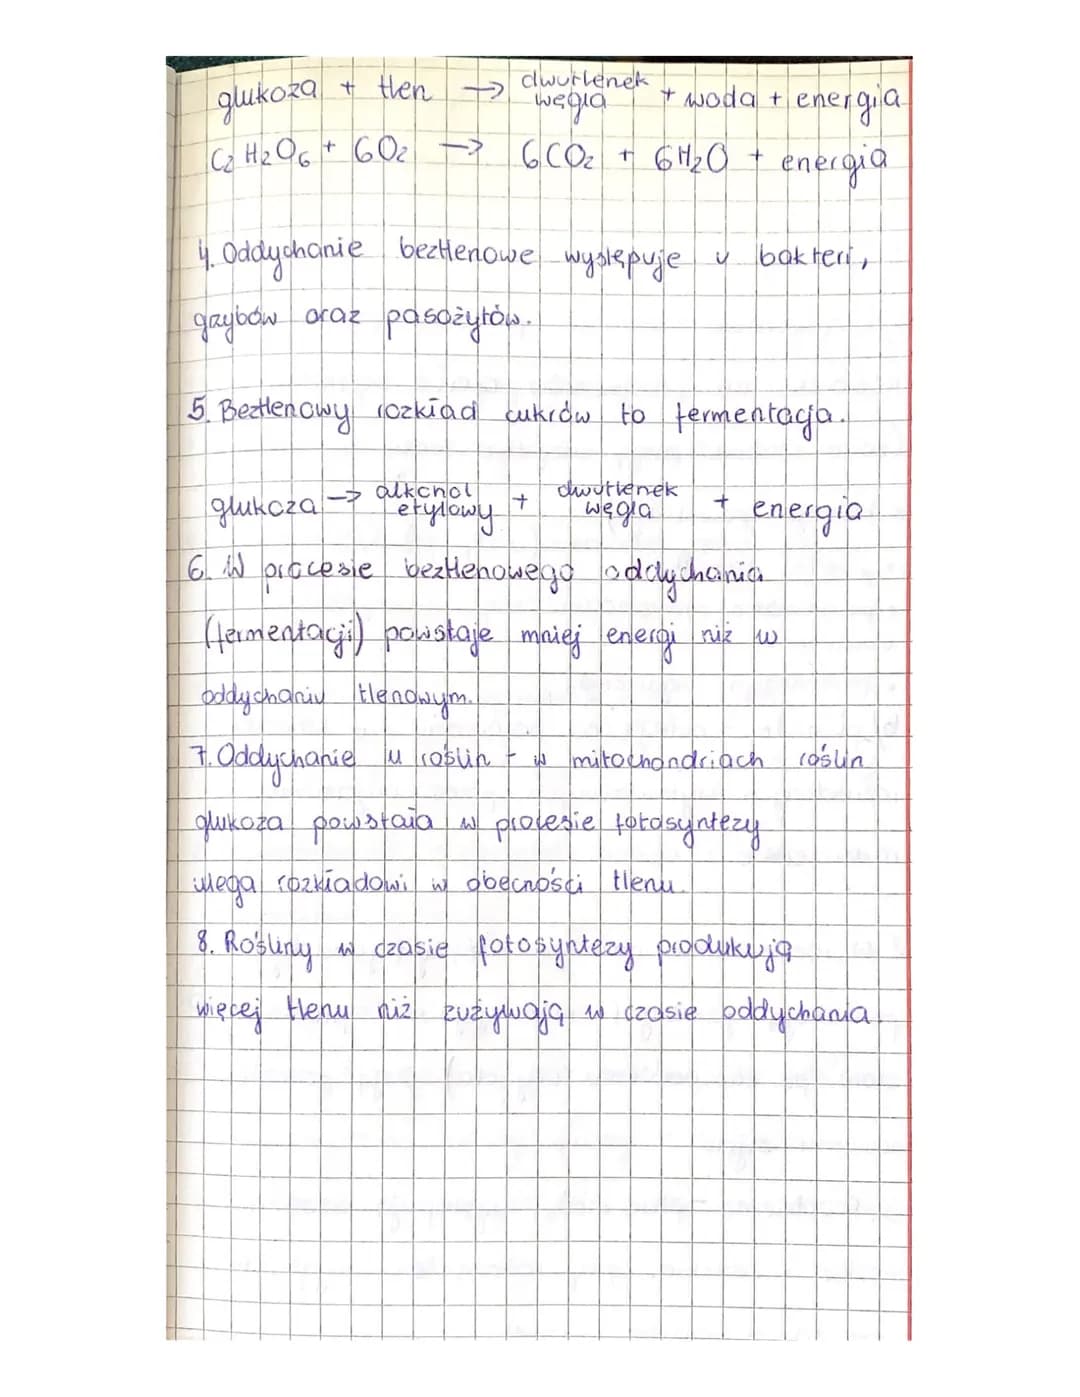 glukoza + tlen → dwutlenek węgla + woda + energia
C2 H2O6 + 6O2 → 6CO2 + 6H2O + energia
4. Oddychanie beztlenowe występuje u bakteri,
grzybów oraz pasożytów.
5. Beztlenowy rozkład cukrów to fermentacja.
glukoza → alkohol etylowy + dwutlenek węgla + energia
6. W procesie beztlenowego oddychania
(fermentacji) powstaje mniej energi niż w
oddychaniu tlenowym.
7. Oddychanie u roślin - w mitochondriach roślin
glukoza powstała w procesie fotosyntezy
ulega rozkładowi w obecności tlenu.
8. Rośliny w czasie fotosyntezy produkują
więcej tlenu niż zużywają w czasie oddychania.